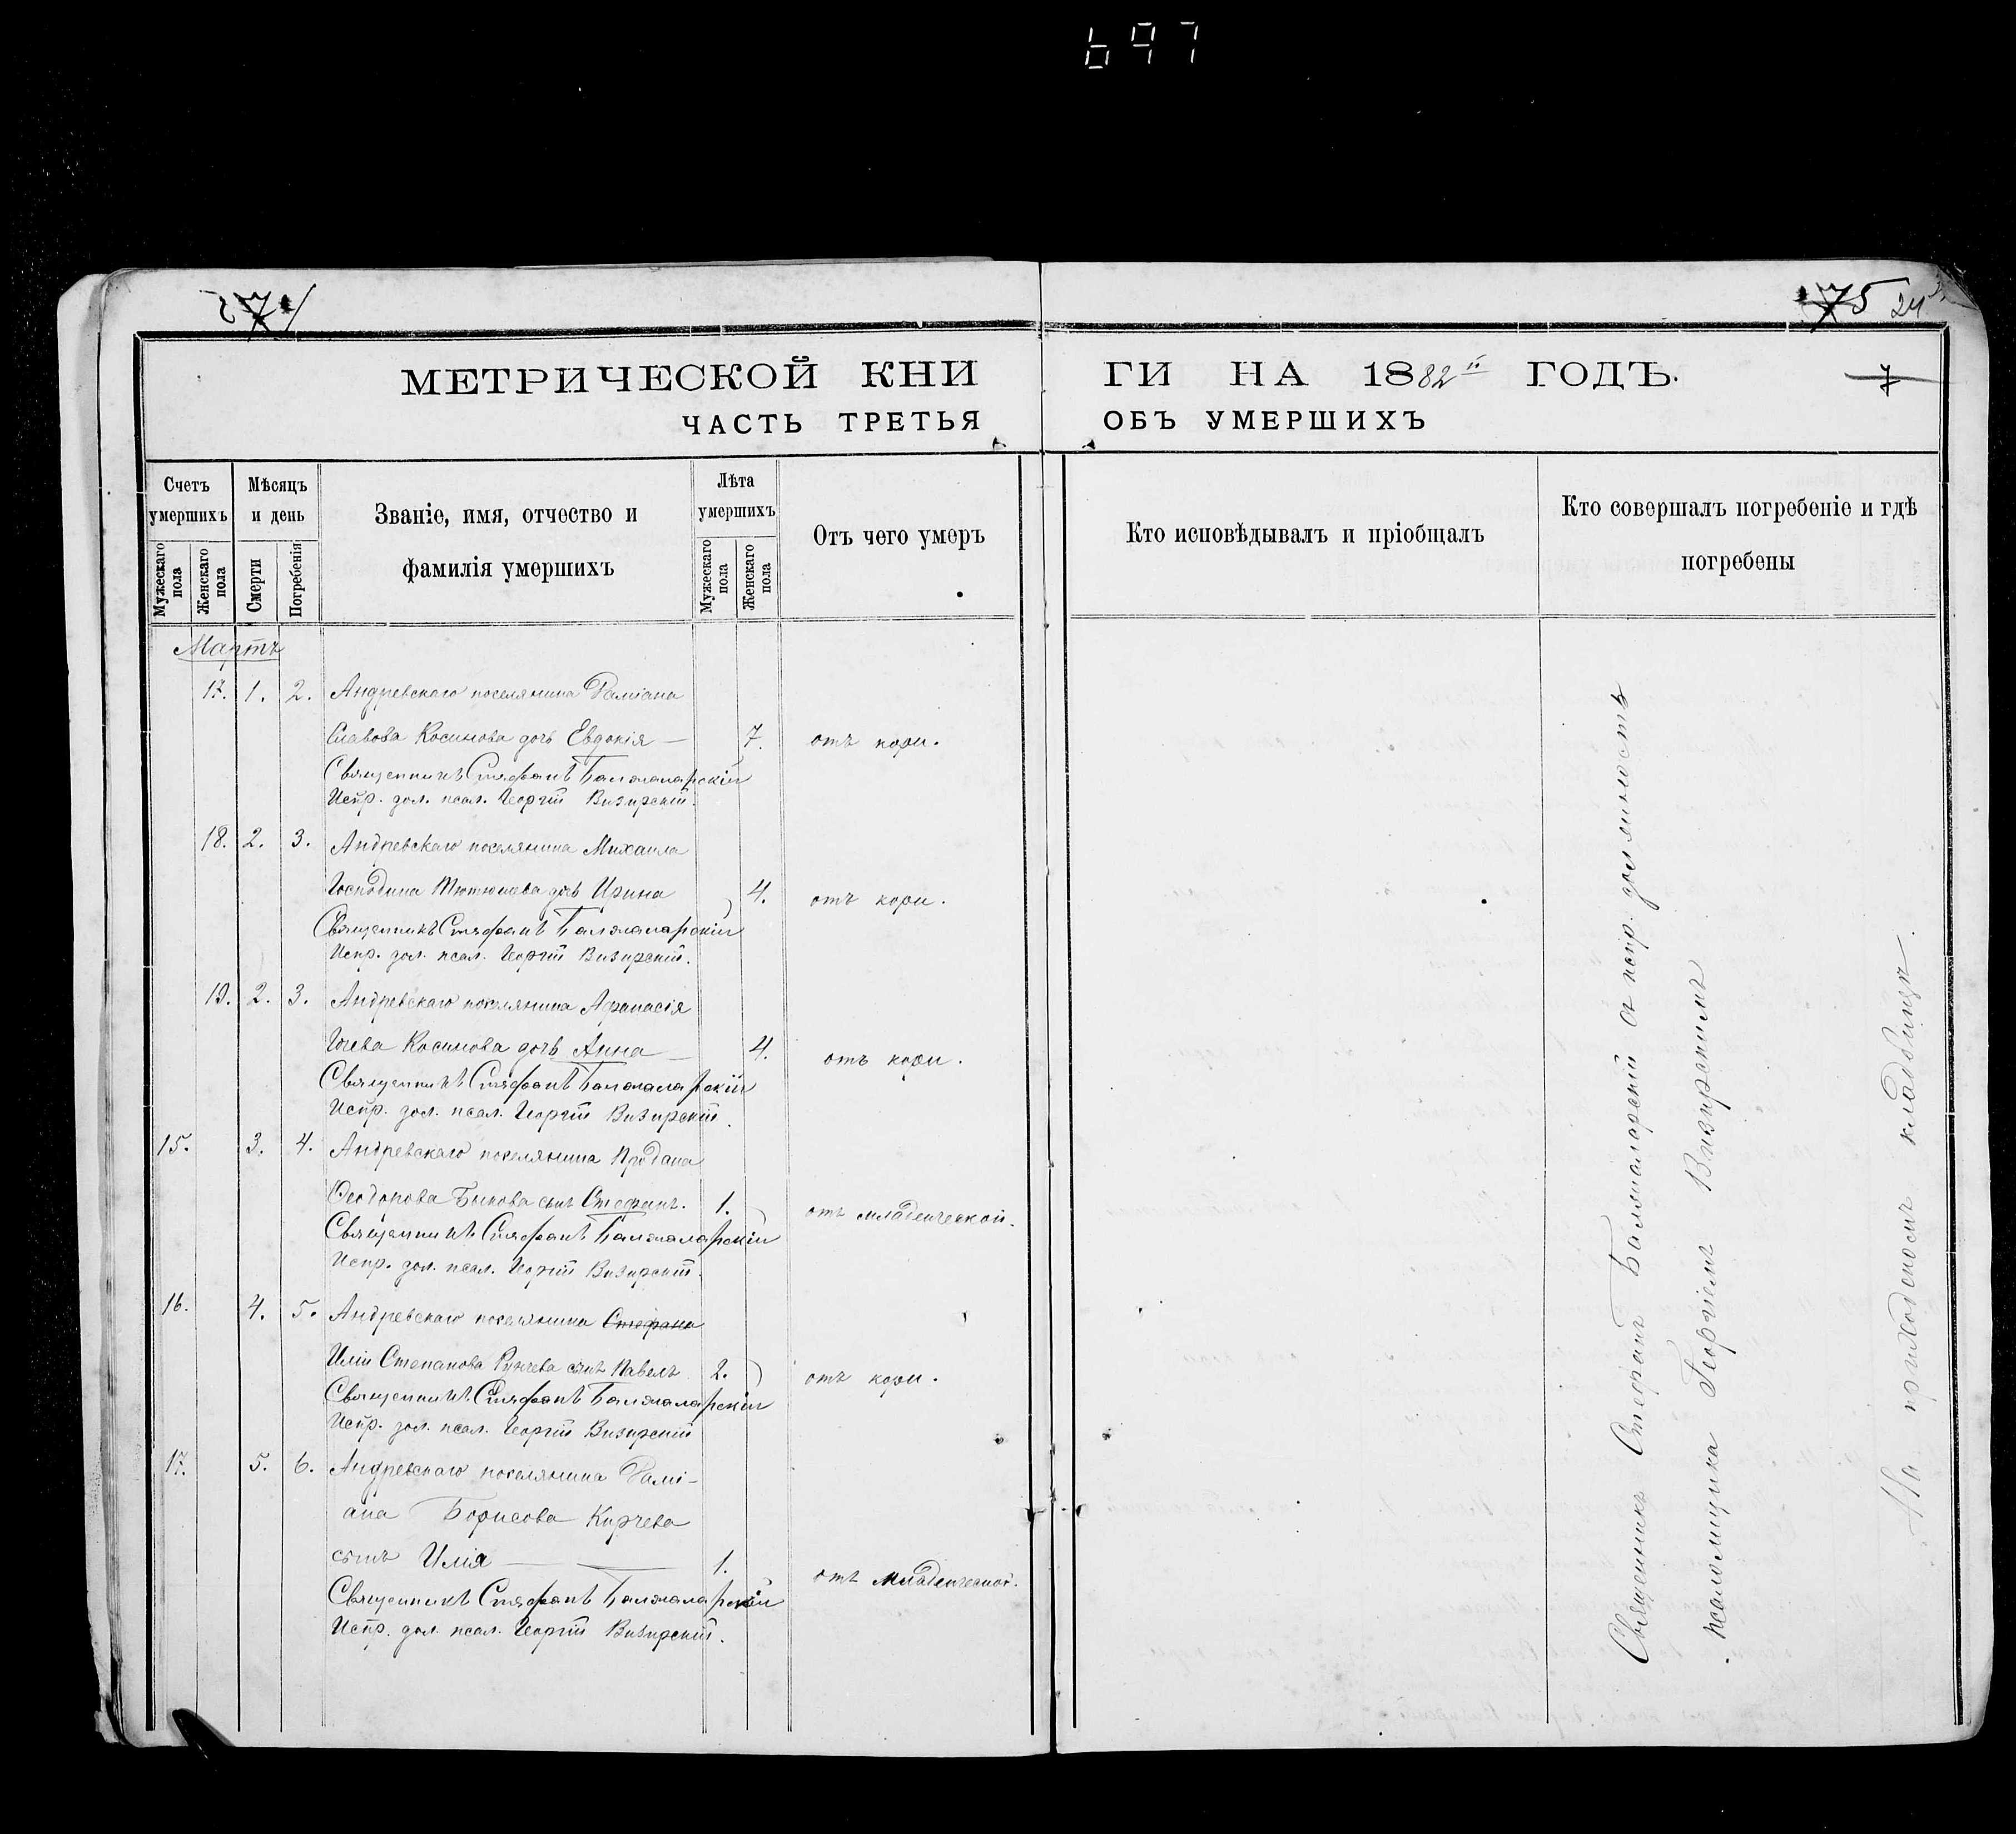 697
74
75
24
МЕТРИЧЕСКОЙ КНИ
ГИ НА 1882й ГОДЪ.
7
ЧАСТЬ ТРЕТЬЯ
ОБЪ УМЕРШИХЪ
Счетъ умершихъ
Мужескаго пола
Женскаго пола
Мѣсяцъ и день
Смерти
Погребенія
Званіе, имя, отчество и
фамилія умершихъ
Лѣта умершихъ
Мужескаго пола
Женскаго пола
Отъ чего умеръ
Кто исповѣдывалъ и пріобщалъ
Кто совершалъ погребеніе и гдѣ
погребены
Мартъ
17. 1. 2. Андревскаго поселянина Даміана
Славова Косинова дочь Евдокія — 7. отъ кори.
Священникъ Стефанъ Балжаларскій
Испр. дол. псал. Георгій Визирскій.
18. 2. 3. Андревскаго поселянина Михаила
Господина Тютюнева дочь Ирина 4. отъ кори.
Священникъ Стефанъ Балжаларскій
Испр. дол. псал. Георгій Визирскій.
19. 2. 3. Андревскаго поселянина Афанасія
Косинова дочь Анна — 4. отъ кори.
Священникъ Стефанъ Балжаларскій
Испр. дол. псал. Георгій Визирскій.
15. 3. 4. Андревскаго поселянина Продана
Феодорова сынъ Стефанъ. 1. отъ младенческой.
Священникъ Стефанъ Балжаларскій
Испр. дол. псал. Георгій Визирскій.
16. 4. 5. Андревскаго поселянина Стефана
Иліи Степанова сынъ Павелъ 2. отъ кори.
Священникъ Стефанъ Балжаларскій
Испр. дол. псал. Георгій Визирскій
17. 5. 6. Андревскаго поселянина Дамі-
ана Борисова Кирчева
сынъ Илія — 1. отъ младенческой.
Священникъ Стефанъ Балжаларскій
Испр. дол. псал. Георгій Визирскій.
Священникъ Стефанъ Балжаларскій съ испр. должность
псаломщика Георгіемъ Визирскимъ
На приходскомъ кладбищѣ.